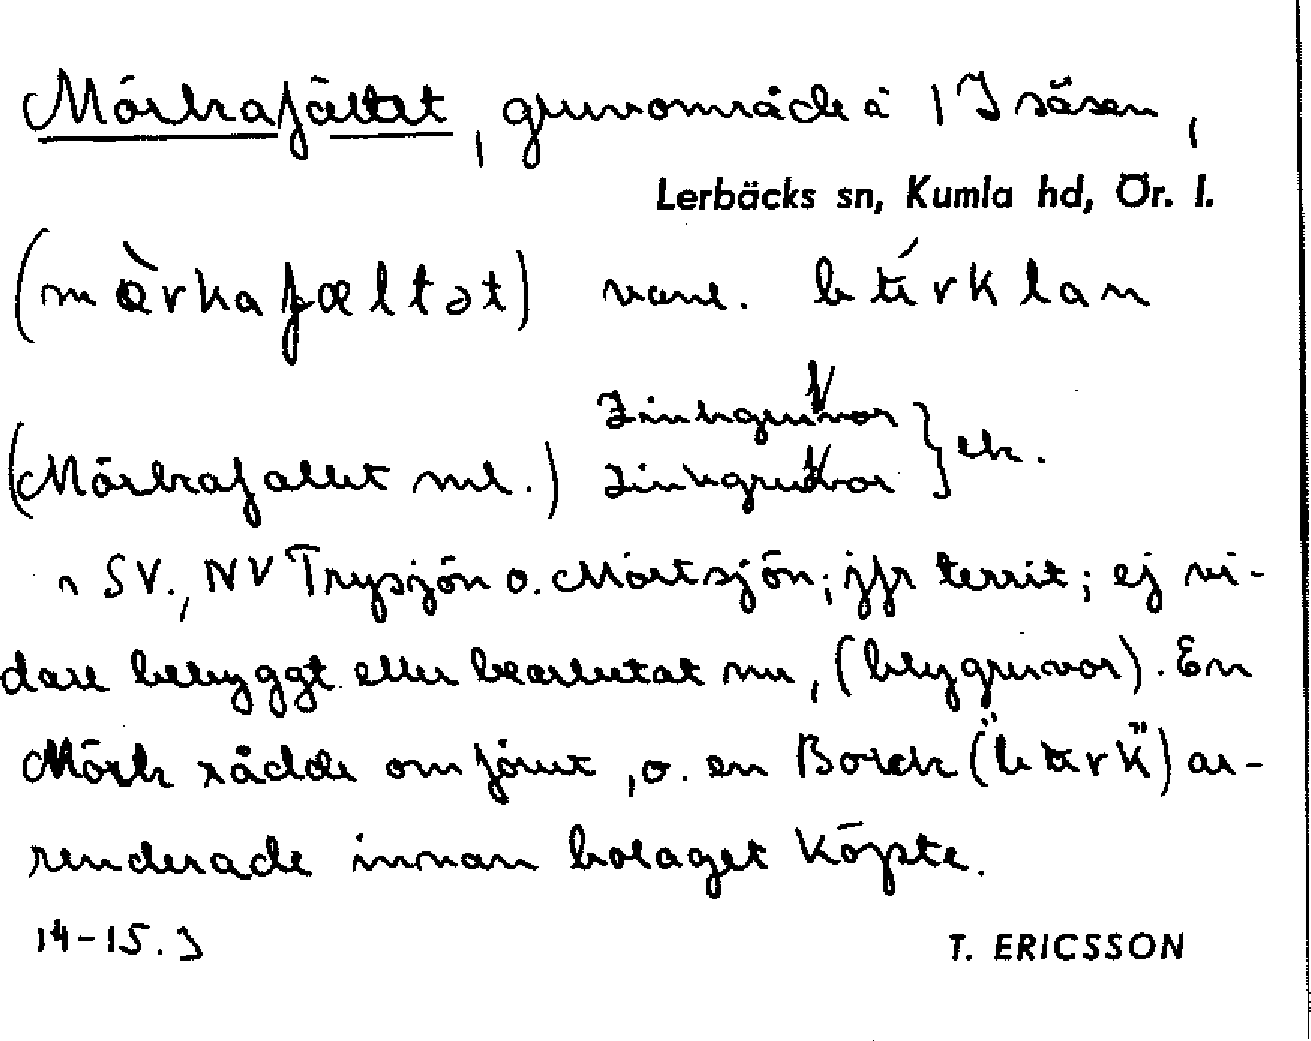 Mörkafältet, gruvområde å 1 Isåsen,
Lerbäcks sn, Kumla hd, Ör. l.
(mèrkafæltət) vanl.
(Mörkafallet ml.) Zinkgruvor } ek.
Zinkgruvor
SV., NV Trysjön o. Mörtsjön; jfr territ; ej vi-
dare bebyggt eller bearbetat nu, (blygruvor). En
Mörk rådde om förut, o. en Borck ar-
renderade innan bolaget köpte.
14-15. J
T. ERICSSON